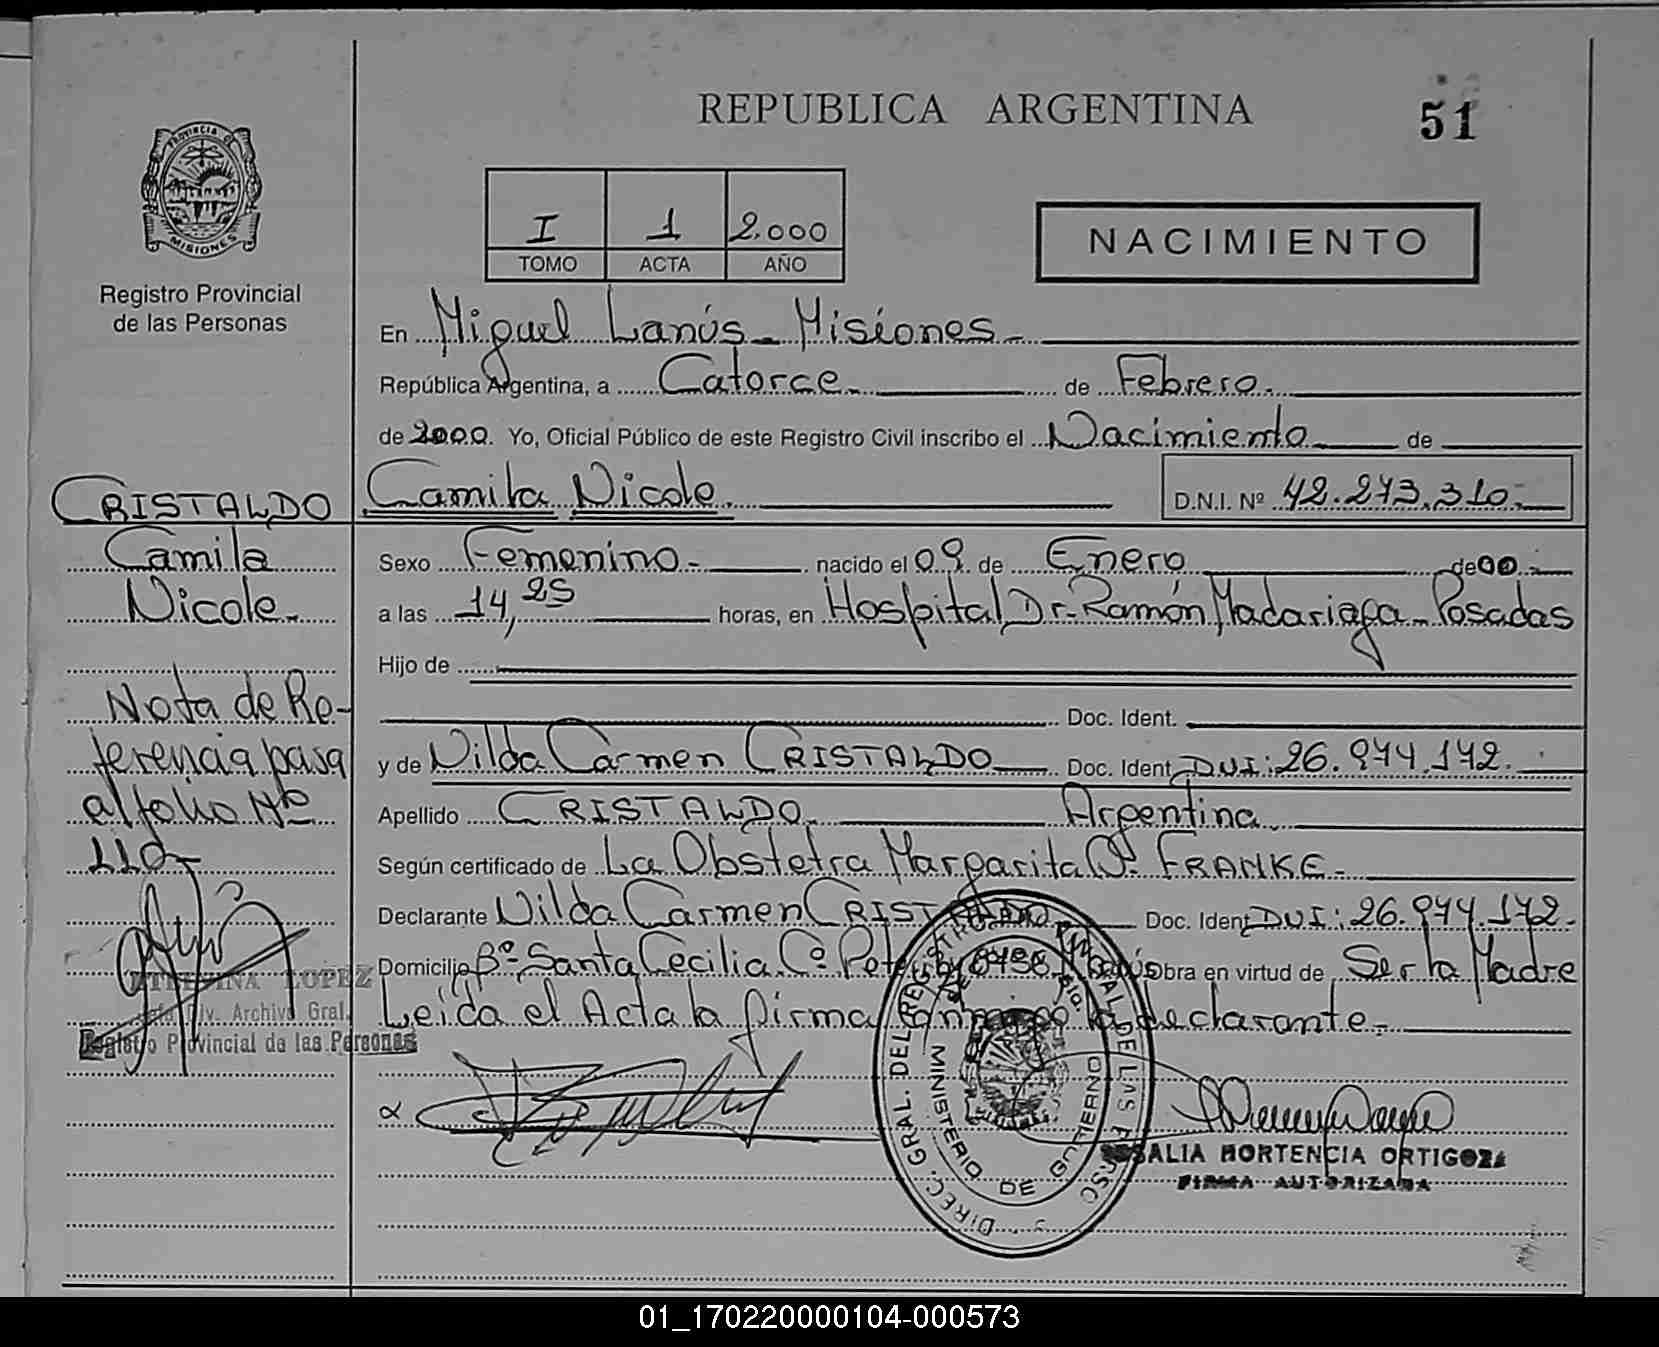 REPUBLICA ARGENTINA
51
PROVINCIA DE
MISIONES
Registro Provincial
de las Personas
I 1 2.000
TOMO ACTA AÑO
NACIMIENTO
En Miguel Lanús - Misiones -
República Argentina, a Catorce de Febrero.
de 2000. Yo, Oficial Público de este Registro Civil inscribo el Nacimiento de
CRISTALDO Camila Nicole. D.N.I. Nº 42.273.310.-
Camila
Nicole.
Sexo Femenino - nacido el 09 de Enero de 00.-
a las 14,25 horas, en Hospital Dr. Ramón Madariaga - Posadas
Hijo de
Doc. Ident.
y de Nilda Carmen CRISTALDO Doc. Ident. DUI: 26.974.172.
Apellido CRISTALDO. Argentina.
Según certificado de La Obstetra Margarita FRANKE -
Declarante Nilda Carmen CRISTALDO Doc. Ident. DUI: 26.974.172.
Domicilio Bº Santa Cecilia Cº Obra en virtud de Ser la Madre
Leída el Acta la firma la declarante.
Nota de Re-
ferencia pasa
al folio Nº
110-
ETELVINA LOPEZ
Jefa Div. Archivo Gral.
Registro Provincial de las Personas
DIREC. GRAL. DEL REGISTRO PROVINCIAL DE LAS PERSO
MINISTERIO DE GOBIERNO
ROSALIA HORTENCIA ORTIGOZA
FIRMA AUTORIZADA
01_170220000104-000573